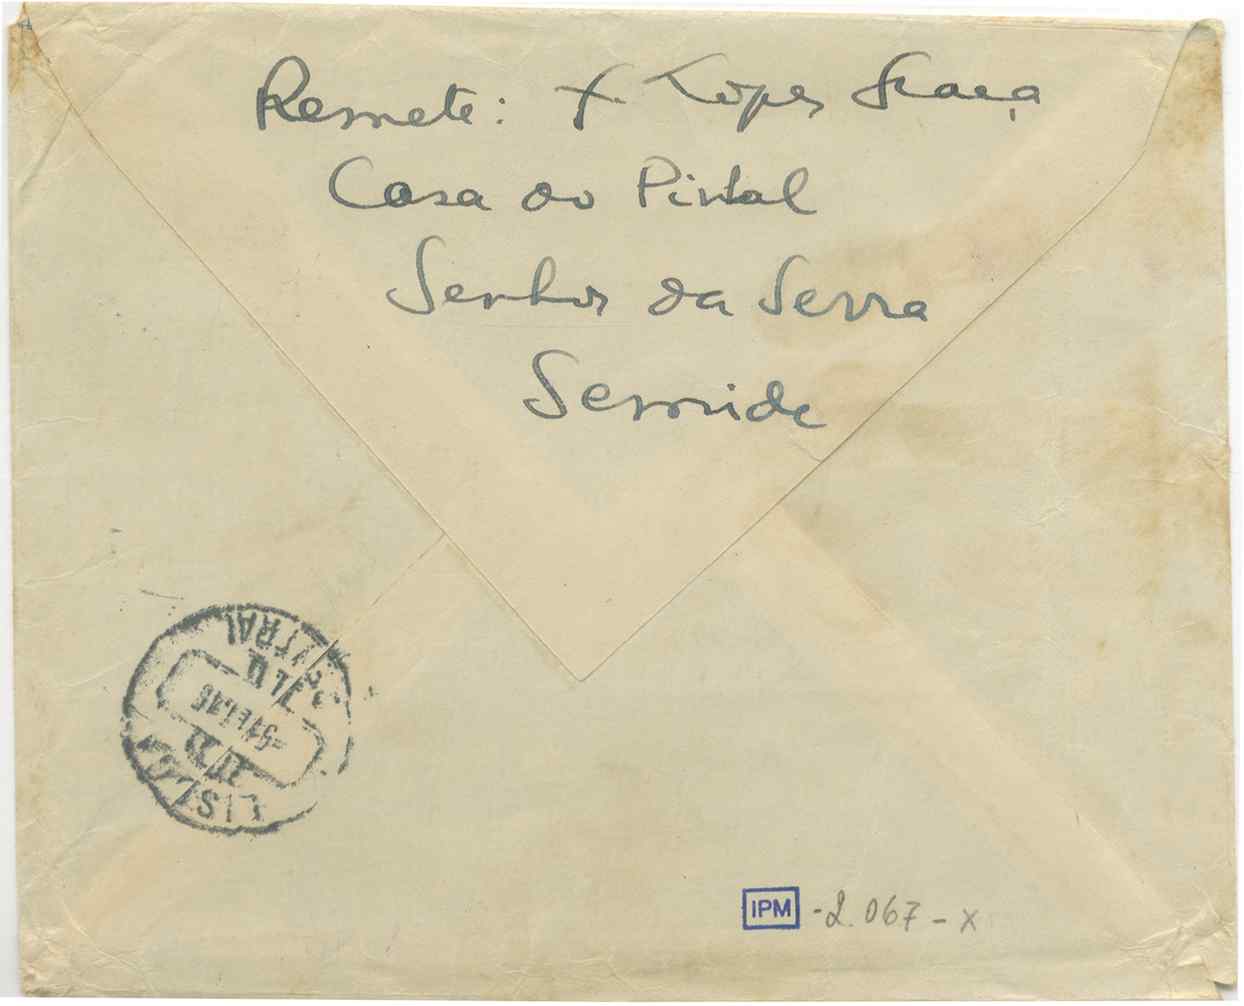 Remete: F. Lopes Graça
Casa do Pinhal
Senhor da Serra
Semide
CENTRAL
LISBOA
IPM -2.067-X